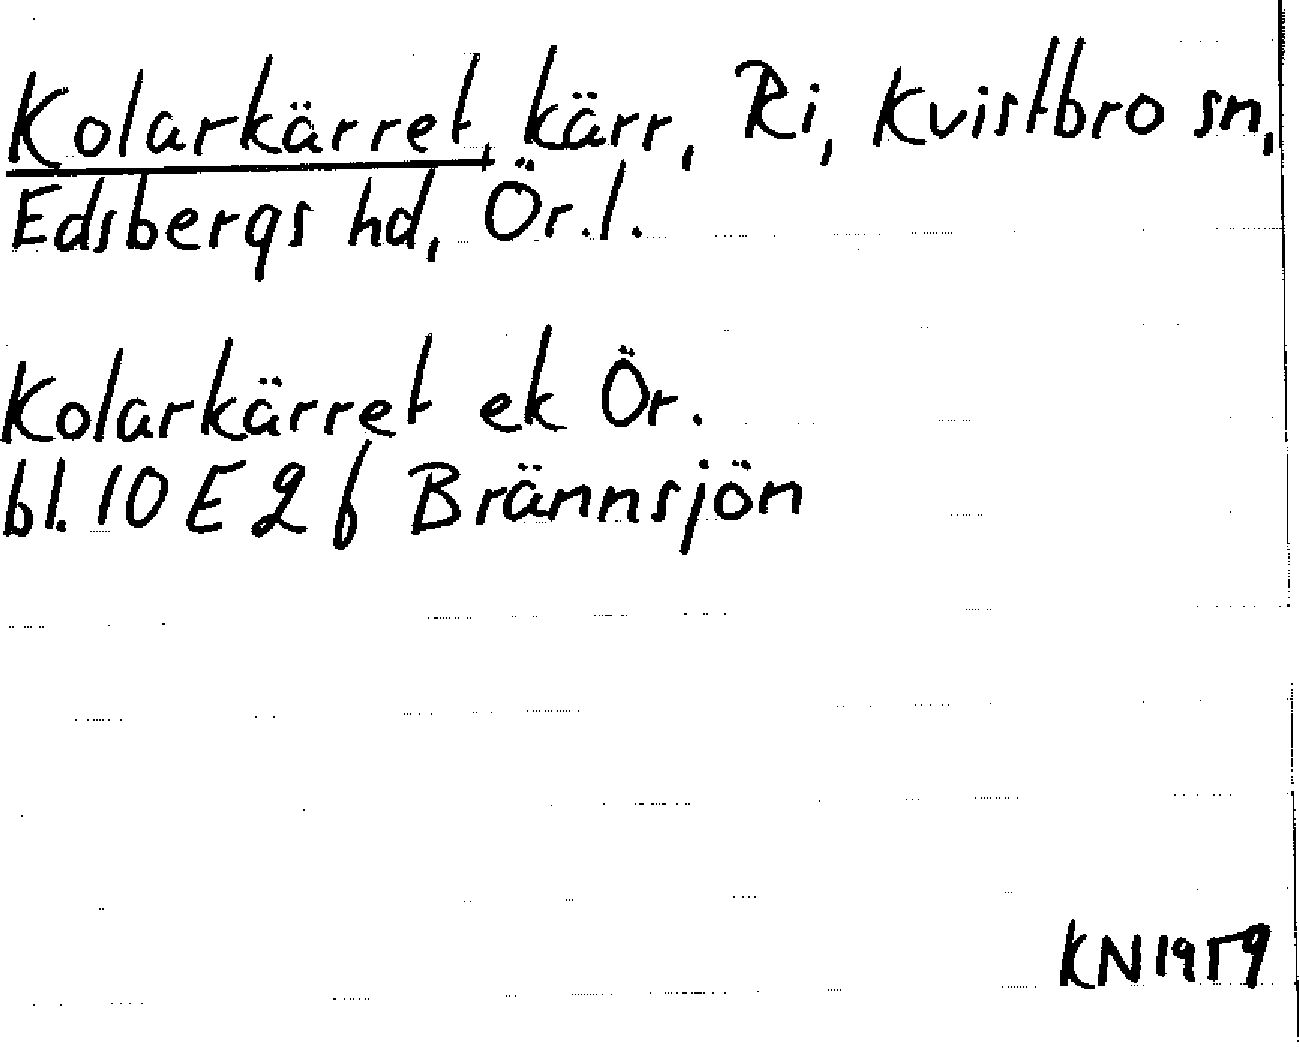 Kolarkärret, kärr, Ri, Kvistbro sn,
Edsbergs hd, Ör.l.
Kolarkärret ek Ör.
bl. 10 E 2 f Brännsjön
KN 1959